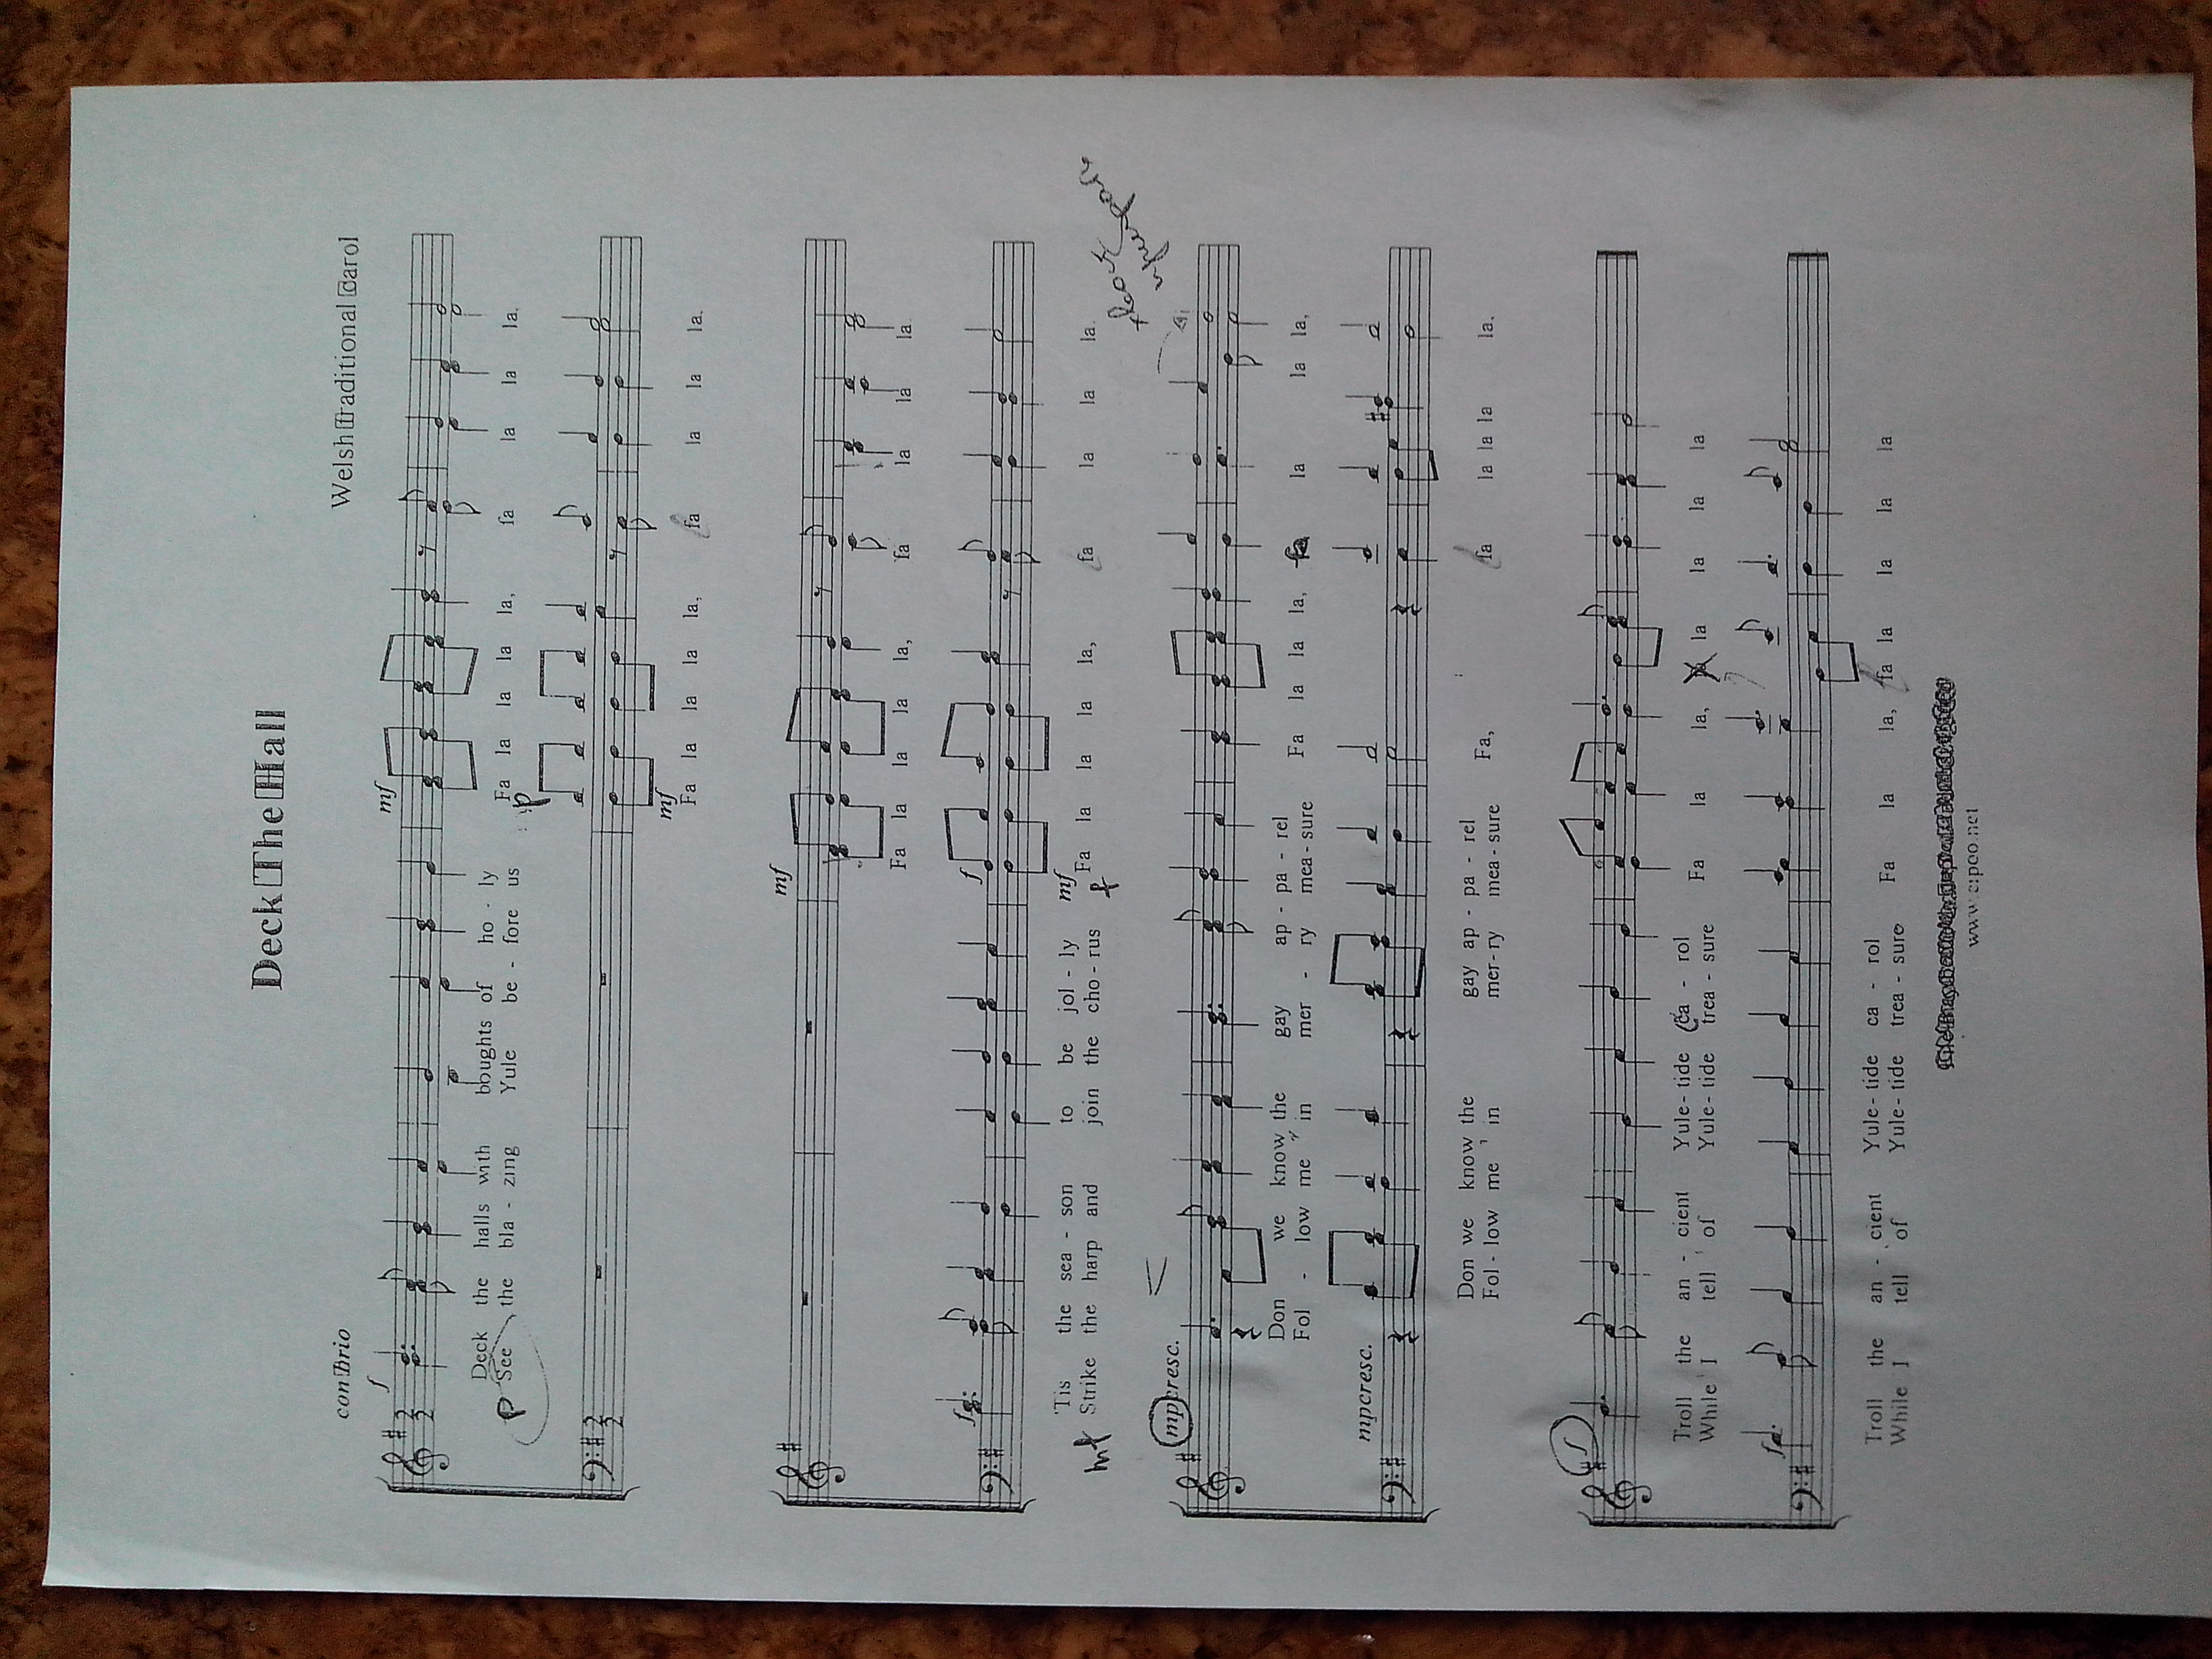 Deck The Hall
Welsh Traditional Carol
con Brio
f
mf
Deck the halls with boughts of ho - ly Fa la la la la, fa la la la.
P See the bla - zing Yule be - fore us p
mf
Fa la la la la, fa la la la.
mf
Fa la la la la, fa la la la
f
f
'Tis the sea - son to be jol - ly mf Fa la la la la, fa la la la.
mf Strike the harp and join the cho - rus f
mpcresc.
Don we know the gay ap - pa - rel Fa la la la, fa la la la,
Fol - low me in mer - ry mea - sure
mpcresc.
Don we know the gay ap - pa - rel Fa, fa la la la la.
Fol - low me in mer - ry mea - sure
f
Troll the an - cient Yule - tide ca - rol Fa la la, la la la la
While I tell of Yule - tide trea - sure
f
Troll the an - cient Yule - tide ca - rol Fa la la, fa la la la la
While I tell of Yule - tide trea - sure
www.cipoo.net